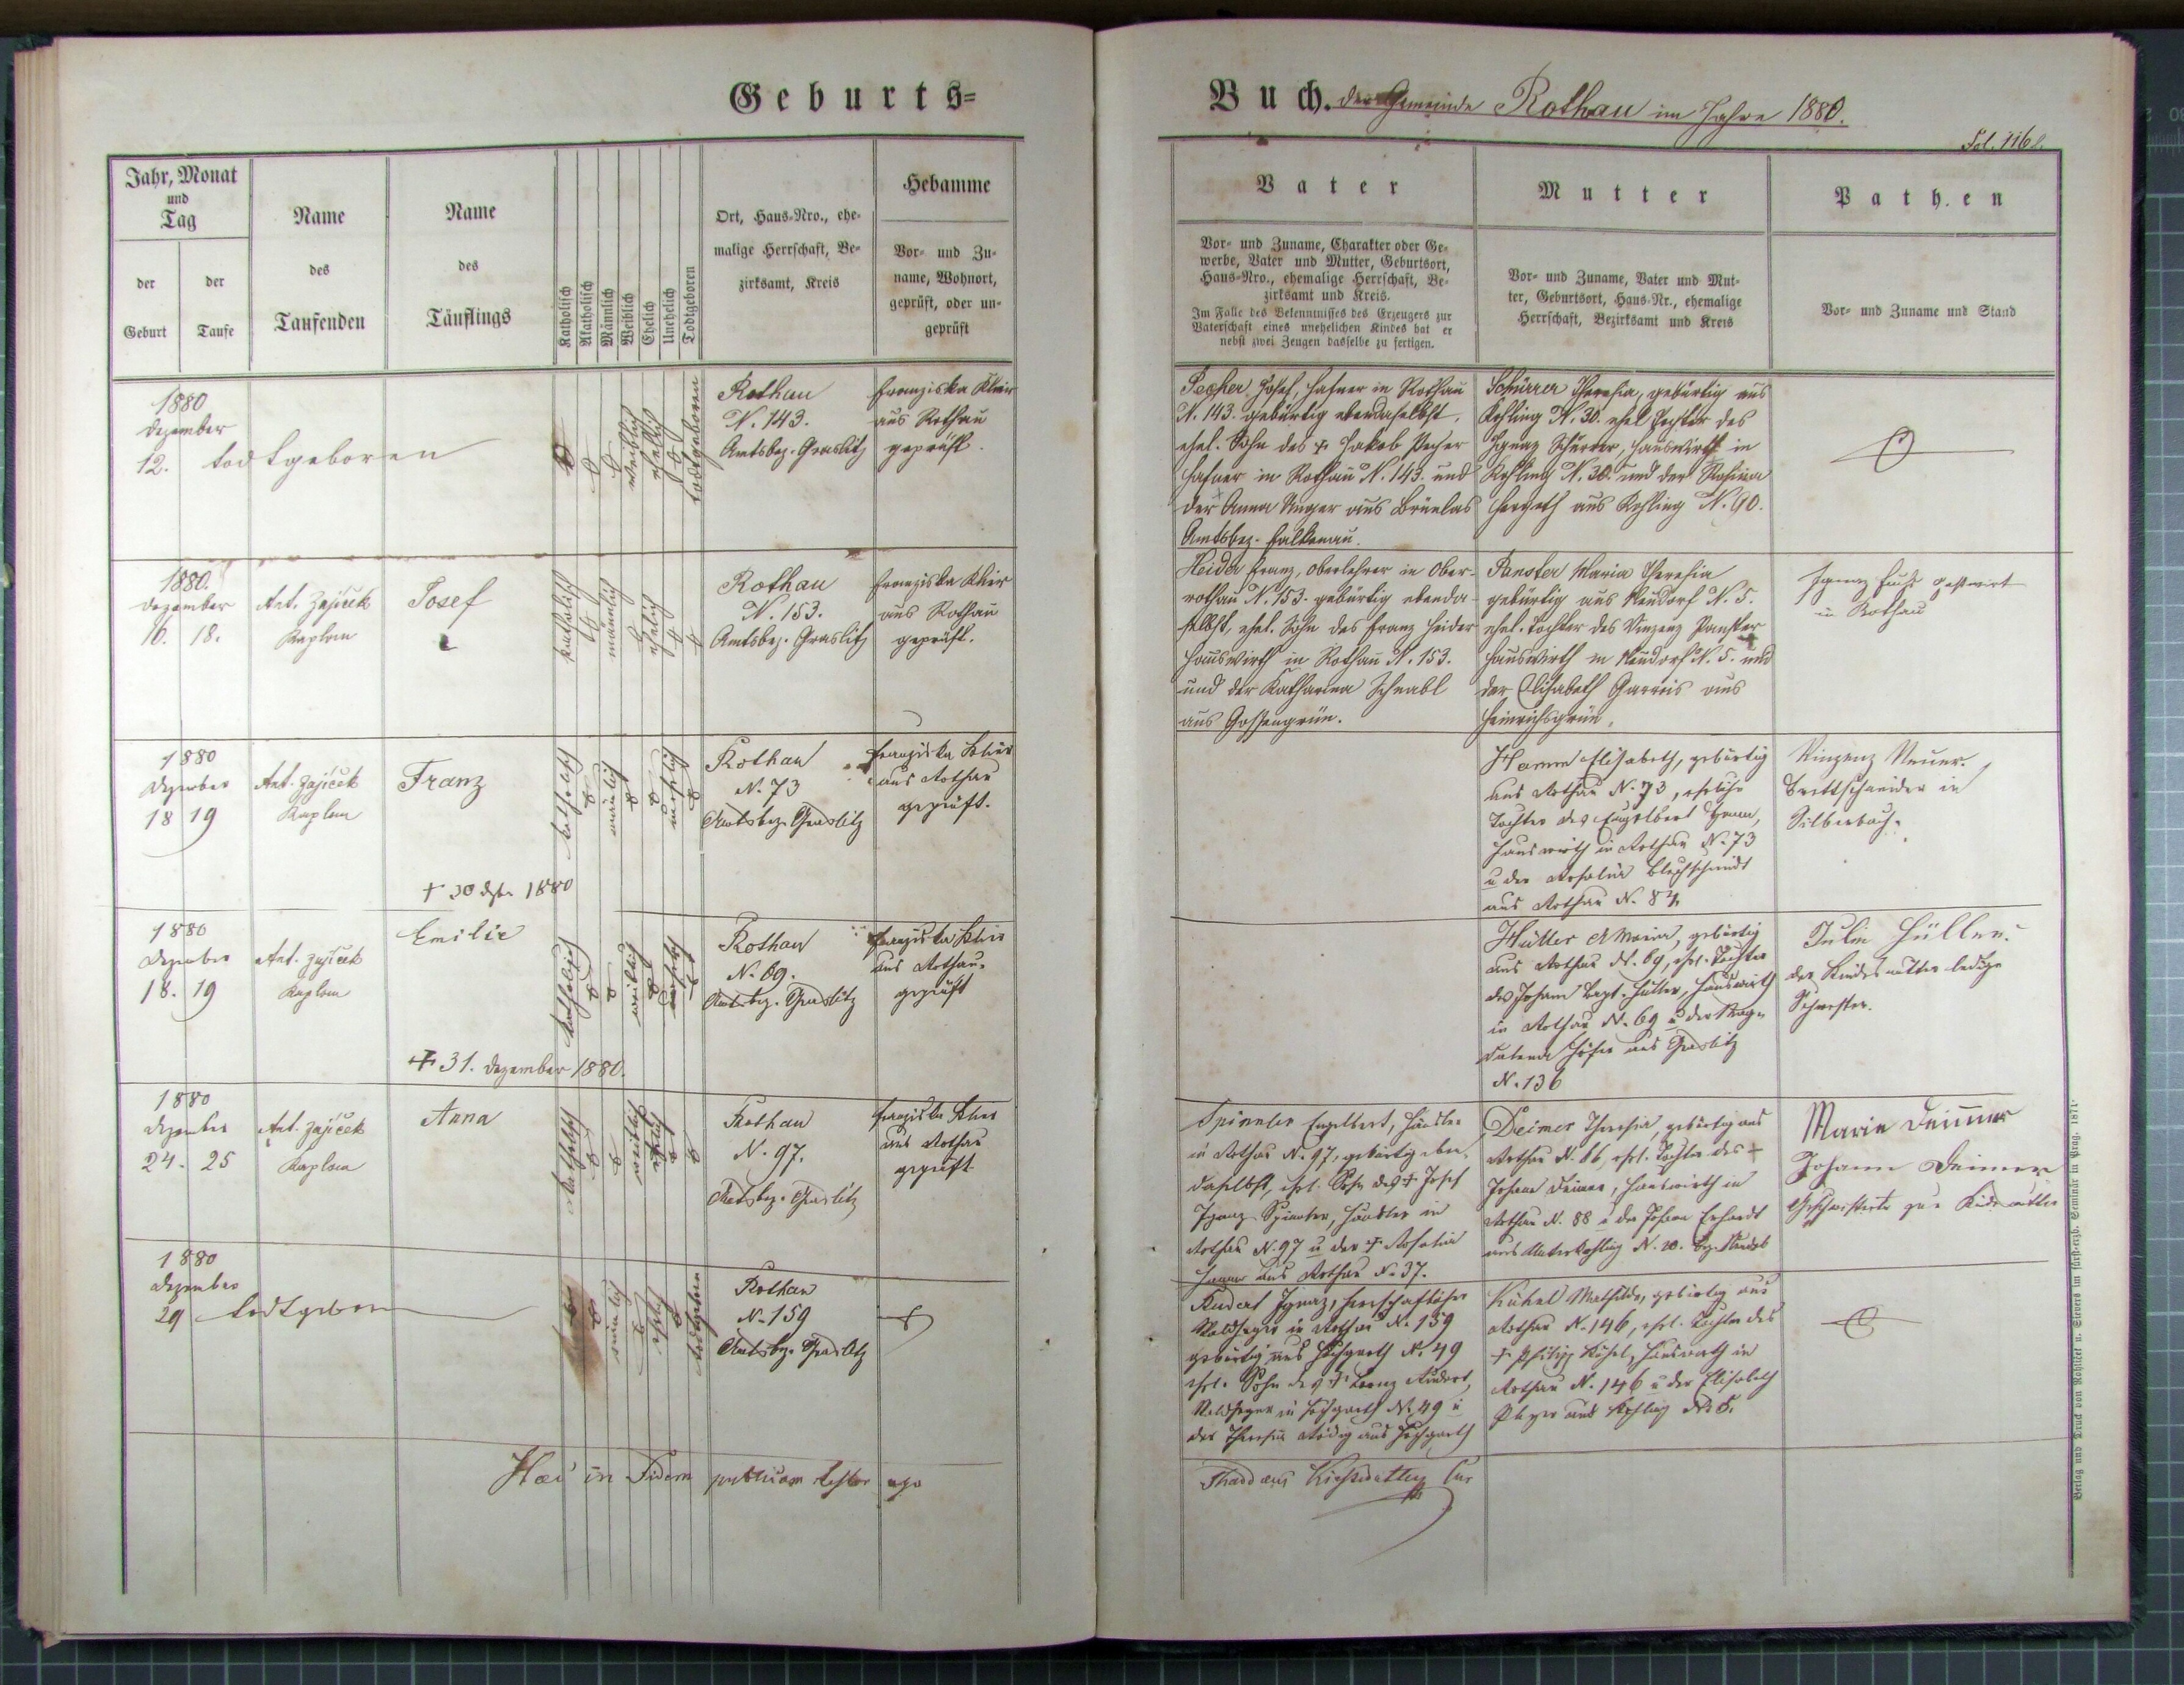 Geburts=
Buch. der Gemeinde Rothau im Jahre 1880.
Fol. 116
Jahr, Monat
und
Tag
der
Geburt
der
Taufe
Name
des
Taufenden
Name
des
Täuflings
Katholisch
Akatholisch
Männlich
Weiblich
Ehelich
Unehelich
Todtgeboren
Ort, Haus-Nro., ehe-
malige Herrschaft, Be-
zirksamt, Kreis
Hebamme
Vor- und Zu-
name, Wohnort,
geprüft, oder un-
geprüft
Vater
Vor- und Zuname, Charakter oder Ge-
werbe, Vater und Mutter, Geburtsort,
Haus-Nro., ehemalige Herrschaft, Be-
zirksamt und Kreis.
Im Falle des Bekenntnisses des Erzeugers zur
Vaterschaft eines unehelichen Kindes hat er
nebst zwei Zeugen dasselbe zu fertigen.
Mutter
Vor- und Zuname, Vater und Mut-
ter, Geburtsort, Haus-Nr., ehemalige
Herrschaft, Bezirksamt und Kreis
Pathen
Vor- und Zuname und Stand
1880
Dezember
12. todtgeboren
weiblich
ehelich
todtgeboren
Rothau
N. 143.
Amtsbez. Graslitz
Franziska Klier
aus Rothau
geprüft.
Pecher Josef, Hafner in Rothau
N. 143. gebürtig ebendaselbst,
ehel. Sohn des + Jakob Pecher
Hafner in Rothau N. 143. und
der Anna Unger aus
Amtsbez. Falkenau.
Schürrer Theresia, gebürtig aus
Kohling N. 30. ehel. Tochter des
Ignaz Schürrer, Hauswirth in
Kohling N. 30. und der Rosina
aus Kohling N. 90.
1880.
Dezember
16. 18.
Ant. Zajiček
Kaplan
Josef
katholisch
männlich
ehelich
Rothau
N. 153.
Amtsbez. Graslitz
Franziska Klier
aus Rothau
geprüft.
Heida Franz, Oberlehrer in Ober-
rothau N. 153. gebürtig ebenda-
selbst, ehel. Sohn des Franz Heider
Hauswirth in Rothau N. 153.
und der Katharina Schnabl
aus Gossengrün.
Panster Maria Theresia
gebürtig aus Neudorf N. 5.
ehel. Tochter des Vinzenz Panster
Hauswirth in Neudorf N. 5. und
der Elisabeth aus
Heinrichsgrün.
Ignaz Fuchs Gastwirt
in Rothau
1880
Dezember
18 19
Ant. Zajiček
Kaplan
Franz
+ 30 Dzbr 1880
katholisch
männlich
unehelich
Rothau
N. 73
Amtsbez. Graslitz
Franziska Klier
aus Rothau
geprüft.
Hamm Elisabeth, gebürtig
aus Rothau N. 73, eheliche
Tochter des Engelbert Hamm,
Hauswirth in Rothau N. 73
u der Rosalia Blechschmidt
aus Rothau N. 84
Vinzenz Neuner.
Brettschneider in
Silberbach.
1880
Dezember
18. 19
Ant. Zajiček
Kaplan
Emilie
+ 31. Dezember 1880.
katholisch
weiblich
unehelich
Rothau
N. 69.
Amtsbez. Graslitz
Franziska Klier
aus Rothau
geprüft
Hüller Maria, gebürtig
aus Rothau N. 69, ehel. Tochter
des Johann Bapt. Hüller, Hauswirth
in Rothau N. 69 u der Mag-
dalena Höfer aus Graslitz
N. 136
Julie Hüller.
der Kindesmutter ledige
Schwester.
1880
Dezember
24. 25
Ant. Zajiček
Kaplan
Anna
katholisch
weiblich
ehelich
Rothau
N. 97.
Amtsbez. Graslitz
Franziska Klier
aus Rothau
geprüft
Spinnler Engelbert, Händler
in Rothau N. 97, gebürtig eben-
daselbst, ehel. Sohn des + Josef
Ignaz Spinnler, Händler in
Rothau N. 97 u der + Rosalia
Hamm aus Rothau N. 37.
Deimer Theresia, gebürtig aus
Rothau N. 66, ehel. Tochter des +
Johann Deimer, Hauswirth in
Rothau N. 88 u der Johanna Erhardt
aus Unterkohling N. 20. Bez. Neudek
Marie Deimer
Johann Deimer
Geschwisterte zur Kindesmutter
1880
Dezember
29 todtgeboren
männlich
ehelich
todtgeboren
Rothau
N. 159
Amtsbez. Graslitz
Rudert Ignaz, herrschaftlicher
Waldheger in Rothau N. 159
gebürtig aus Hochgarth N. 49
ehel. Sohn des + Franz Rudert,
Waldheger in Hochgarth N. 49 u
der Theresia aus Hochgarth
Kühnl Mathilde, gebürtig aus
Rothau N. 146, ehel. Tochter des
+ Philipp Kühnl, Hauswirth in
Rothau N. 146 u der Elisabeth
aus Kohling N. 5.
Haec in Fidem publicam testor ego
Thaddaeus
Verlag und Druck von Rohliček u. Sievers im fürsterzb. Seminär in Prag. 1871.